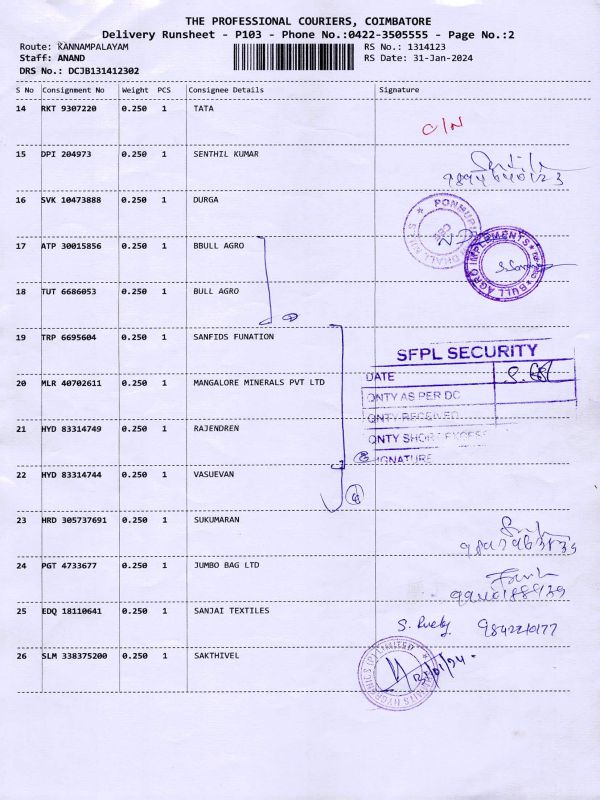 THE PROFESSIONAL COURIERS, COIMBATORE
Delivery Runsheet - P103 - Phone No.:0422-3505555 - Page No.:2
Route: KANNAMPALAYAM RS No.: 1314123
Staff: ANAND RS Date: 31-Jan-2024
DRS No.: DCJB131412302
S No Consignment No Weight PCS Consignee Details Signature
14 RKT 9307220 0.250 1 TATA
C/N
15 DPI 204973 0.250 1 SENTHIL KUMAR
16 SVK 10473888 0.250 1 DURGA
17 ATP 30015856 0.250 1 BBULL AGRO
BULL AGRO IMPLEMENTS
18 TUT 6686053 0.250 1 BULL AGRO
19 TRP 6695604 0.250 1 SANFIDS FUNATION
SFPL SECURITY
20 MLR 40702611 0.250 1 MANGALORE MINERALS PVT LTD
DATE
QNTY AS PER DC
QNTY RECEIVED
21 HYD 83314749 0.250 1 RAJENDREN
QNTY SHORT EXCESS
SIGNATURE
22 HYD 83314744 0.250 1 VASUEVAN
23 HRD 305737691 0.250 1 SUKUMARAN
24 PGT 4733677 0.250 1 JUMBO BAG LTD
25 EDQ 18110641 0.250 1 SANJAI TEXTILES
26 SLM 338375200 0.250 1 SAKTHIVEL
31/01/24